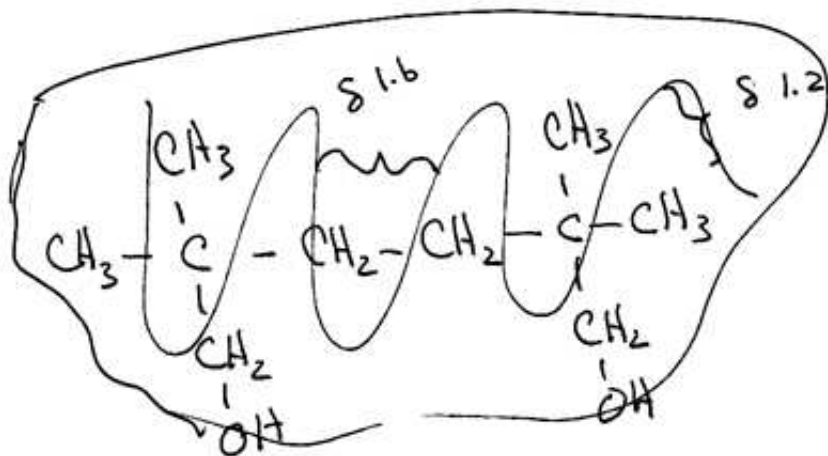 δ 1.6 δ 1.2
CH3 CH3
CH3 - C - CH2 - CH2 - C - CH3
CH2 CH2
OH OH